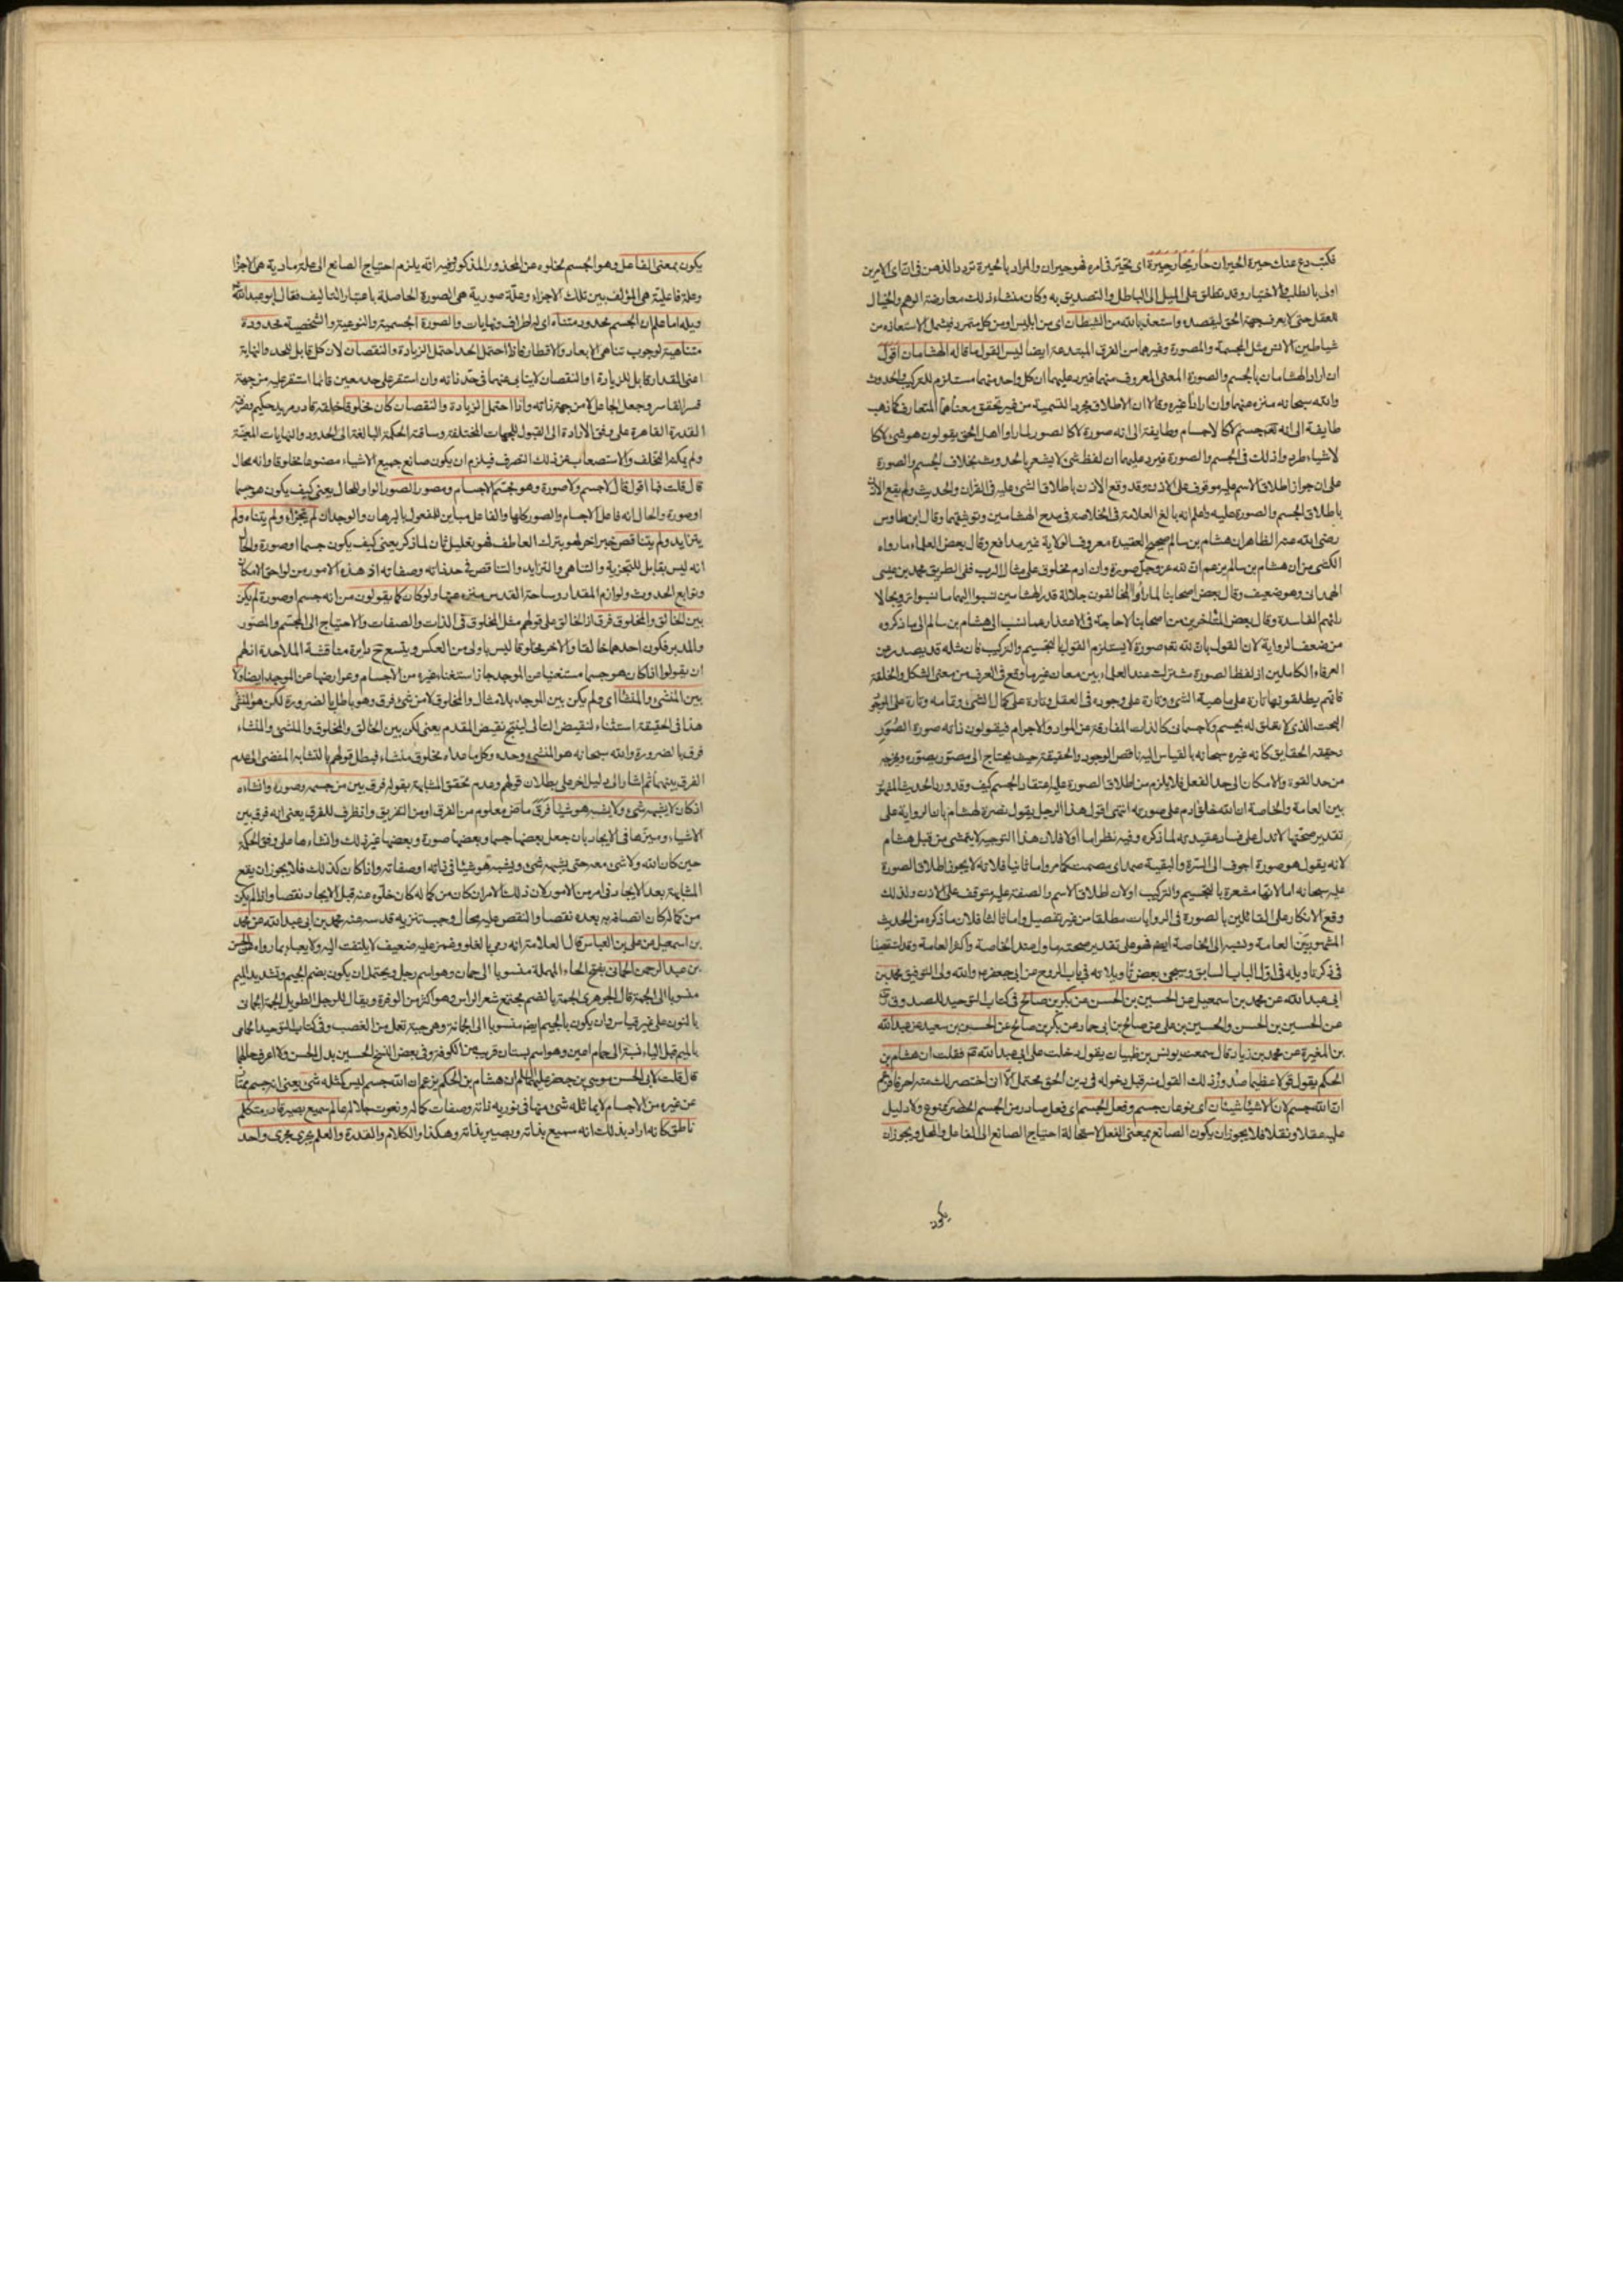 فكتب دع عنك حيرة الحيران حار يحار حيرة اى تحير فى امره فهو حيران والمراد بالحيرة تردد الذهن فى ان اى الامرين
اولى بالطلب والاختيار وقد تطلق على الميل الى الباطل والتصديق به وكان منشاء ذلك معارضة الوهم والخيال
للعقل حتى لا يعرف جهة الحق ليقصده واستعذ بالله من الشيطان اى من ابليس او من كل متمرد فيشمل الاستعاذة من
شياطين الانس مثل المجسمة والمصورة وغيرهما من الفرق المبتدعة ايضا ليس القول ما قاله الهشامان اقول
ان اراد الهشامان بالجسم والصورة المعنى المعروف منهما فيرد عليهما ان كل واحد منهما مستلزم للتركيب والحدوث
والله سبحانه منزه عنهما وان ارادا غيره وقالا ان الاطلاق مجرد التسمية من غير تحقق معناهما المتعارف كما ذهب
طايفة الى انه تعم جسم لا كالاجسام وطايفة الى انه صورة لا كالصور لما راوا اهل الحق يقولون هو شئ لا كا
لاشياء طردوا ذلك فى الجسم والصورة فيرد عليهما ان لفظ شئ لا يشعر بالحدوث بخلاف الجسم والصورة
على ان جواز اطلاق الاسم عليه موقوف على الاذن وقد وقع الاذن باطلاق الشئ عليه فى القران والحديث ولم يقع الاذن
باطلاق الجسم والصورة عليه واعلم انه بالغ العلامة فى الخلاصة فى مدح الهشامين وتوثيقهما وقال ابن طاوس
رضى الله عنه الظاهر ان هشام بن سالم صحيح العقيدة معروف الولاية غير مدافع وقال بعض العلماء ما رواه
الكشى من ان هشام بن سالم يزعم ان لله عز وجل صورة وان ادم مخلوق على مثال الرب ففى الطريق محمد بن عيسى
الهمدانى وهو ضعيف وقال بعض اصحابنا لما راوا المخالفون جلالة قدر الهشامين نسبوا اليهما ما نسبوا ترويجا لا
رائهم الفاسدة وقال بعض المتاخرين من اصحابنا لا حاجة فى الاعتذار عما نسب الى هشام بن سالم الى ما ذكروه
من ضعف الرواية لان القول بان لله تعم صورة لا يستلزم القول بالتجسيم والتركيب فان مثله قد يصدر عن
العرفاء الكاملين اذ لفظ الصورة مشترك عند العلماء بين معان غير ما وقع فى العرف من معنى الشكل والخلقة
فانهم يطلقونها تارة على ماهية الشئ وتارة على وجوده فى العقل وتارة على كمال الشئ وتمامه وتارة على الوجود
البحت الذى لا تعلق له بجسم ولا جسمانى كالذات المفارقة عن المواد والاجرام فيقولون ذاته صورة الصور
وحقيقة الحقايق كانه غيره سبحانه بالقياس اليه ناقص الوجود والحقيقة حيث يحتاج الى مصور يصوره ويخرجه
من حد القوة والامكان الى حد الفعل فلا يلزم من اطلاق الصورة عليه اعتقاد الجسم كيف وقد ورد الحديث المشهور
بين العامة والخاصة ان الله خلق ادم على صورته انتهى اقول هذا الرجل يقول نصرة لهشام بان الرواية على
تقدير صحتها لا تدل على فساد عقيدته لما ذكره وفيه نظر اما اولا فلان هذا التوجيه لا يتمشى من قبل هشام
لانه يقول هو صورة اجوف الى السرة والبقية صمداى مصمت كما مر واما ثانيا فلانه لا يجوز اطلاق الصورة
عليه سبحانه اما لانها مشعرة بالتجسيم والتركيب او لان اطلاق الاسم والصفة عليه متوقف على الاذن ولذلك
وقع الانكار على القائلين بالصورة فى الروايات مطلقا من غير تفصيل واما ثالثا فلان ما ذكره من الحديث
المشهور بين العامة ونسبه الى الخاصة ايضم فهو على تقدير صحته ماول عند الخاصة واكثر العامة وقد استقصينا
فى ذكر تاويله فى اول الباب السابق وسيجئ بعض تاويلاته فى باب الروح عن ابى جعفر ع والله ولى التوفيق محمد بن
ابى عبد الله عن محمد بن اسمعيل عن الحسين بن الحسن عن بكر بن صالح فى كتاب التوحيد للصدوق
عن الحسين بن الحسن والحسين بن على عن صالح بن ابى حماد عن بكر بن صالح عن الحسين بن سعيد عن عبد الله
بن المغيرة عن محمد بن زياد قال سمعت يونس بن ظبيان يقول دخلت على ابى عبد الله ع فقلت ان هشام بن
الحكم يقول قولا عظيما صدور ذلك القول منه قبل دخوله فى دين الحق محتمل الا ان اختصر لك منه احرفا فزعم
ان الله جسم لان الاشياء شيئان اى نوعان جسم وفعل الجسم اى فعل صادر من الجسم الحصر ممنوع ولا دليل
عليه عقلا ونقلا فلا يجوز ان يكون الصانع بمعنى الفعل لاستحالة احتياج الصانع الى الفاعل والمحل ويجوز ان
يكون
يكون بمعنى الفاعل وهو الجسم لخلوه عن المحذور المذكور وفيه انه يلزم احتياج الصانع الى علة مادية هى الاجزا
وعلة فاعلية هى المؤلف بين تلك الاجزاء وعلة صورية هى الصورة الحاصلة باعتبار التاليف فقال ابو عبد الله
ويله اما علم ان الجسم محدود متناه اى له اطراف ونهايات والصورة الجسمية والنوعية والشخصية محدودة
متناهية لوجوب تناهى الابعاد والاقطار فاذا احتمل الحد احتمل الزيادة والنقصان لان كل قابل للحد والنهاية
اعنى المقدار قابل للزيادة او النقصان لا يتابى عنهما فى حد ذاته وان استقر على حد معين فانما استقر عليه من جهة
قسر القاسر وجعل الجاعل لا من جهة ذاته واذا احتمل الزيادة والنقصان كان مخلوقا خلقه قادر مريد حكيم وصرفته
القدرة القاهرة على وفق الارادة الى القبول للجهات المختلفة وساقته الحكمة البالغة الى الحدود والنهايات المعينة
ولم يمكنه التخلف والاستصعاب عن ذلك التصرف فيلزم ان يكون صانع جميع الاشياء مصنوعا مخلوقا وانه محال
قال قلت فما اقول قال لا جسم ولا صورة وهو مجسم الاجسام ومصور الصور الواو للحال يعنى كيف يكون هو جسما
او صورة والحال انه فاعل الاجسام والصور كلها والفاعل مباين للمفعول بالبرهان والوجدان لم يتجزاء ولم يتناه ولم
يتزايد ولم يتناقص خبر اخر لهو بترك العاطف فهو تعليل ثان لما ذكر يعنى كيف يكون جسما او صورة والحال
انه ليس بقابل للتجزية والتناهى والتزايد والتناقص فى حد ذاته وصفاته اذ هذه الامور من لواحق الامكان
وتوابع الحدوث ولوازم المقدار وساحة القدس منزه عنها ولو كان كما يقولون من انه جسم او صورة لم يكن
بين الخالق والمخلوق فرق اذ الخالق على قولهم مثل المخلوق فى الذات والصفات والاحتياج الى المجسم والمصور
والمدبر فكون احدهما خالقا والاخر مخلوقا ليس باولى من العكس ويتسع ح دايرة مناقشة الملاحدة اذ لهم
ان يقولوا اذا كان هو جسما مستغنيا عن الموجد جاز استغناء غيره من الاجسام وعوارضها عن الموجد ايضا ولا
بين المنشئ والمنشأ اى ولم يكن بين الموجد بلا مثال والمخلوق لا من شئ فرق وهو باطل بالضرورة لكن هو المنشئ
هذا فى الحقيقة استثناء لنقيض التالى لينتج نقيض المقدم يعنى لكن بين الخالق والمخلوق والمنشئ والمنشاء
فرق بالضرورة والله سبحانه هو المنشئ وحده وكل ما عداه مخلوق منشاء فبطل قولهم بالتشابه المفضى الى عدم
الفرق بينهما ثم اشار الى دليل اخر على بطلان قولهم وعدم تحقق المشابهة بقوله فرق بين من جسمه وصوره وانشاءه
اذ كان لا يشبهه شئ ولا يشبه هو شيئا فرق ماض معلوم من الفرق او من التفريق واذ ظرف للفرق يعنى انه فرق بين
الاشياء وميزها فى الايجاد بان جعل بعضها جسما وبعضها صورة وبعضها غير ذلك وانشاءها على وفق الحكمة
حين كان الله ولا شئ معه حتى يشبهه شئ ويشبه هو شيئا فى ذاته او صفاته واذا كان كذلك فلا يجوز ان يقع
المشابهة بعد الايجاد فى امر من الامور لان ذلك الامر ان كان من كماله كان خلوه عنه قبل الايجاد نقصا وان لم يكن
من كماله كان اتصافه به بعده نقصا والنقص عليه محال وجب تنزيه قدسه عنه محمد بن ابى عبد الله عن محمد
بن اسمعيل عن على بن العباس قال العلامة انه رمى بالغلو وغمز عليه ضعيف لا يلتفت اليه ولا يعباء بما رواه عن الحسن
بن عبد الرحمن الحمانى بفتح الحاء المهملة منسوبا الى حمان وهو اسم رجل ويحتمل ان يكون بضم الجيم وتشديد الميم
منسوبا الى الجمة قال الجوهرى الجمة بالضم مجتمع شعر الراس وهو اكثر من الوفرة ويقال للرجل الطويل الجمة الجمانى
بالنون على غير قياس وان يكون بالجيم ايضم منسوبا الى الجمانة وهى حبة تعمل من الفضة وفى كتاب التوحيد الحمامى
بالميم قبل الياء نسبة الى حمام اعين وهو اسم بستان قريب من الكوفة وفى بعض النسخ الحسين بدل الحسن ولا اعرف حالهما
قال قلت لابى الحسن موسى بن جعفر عليهما السلام ان هشام بن الحكم يزعم ان الله جسم ليس كمثله شئ يعنى انه جسم ممتاز
عن غيره من الاجسام لا يماثله شئ منها فى نورية ذاته وصفات كماله ونعوت جلاله عالم سميع بصير قادر متكلم
ناطق كانه اراد بذلك انه سميع بذاته وبصير بذاته وهكذا والكلام والقدرة والعلم يجرى مجرى واحد